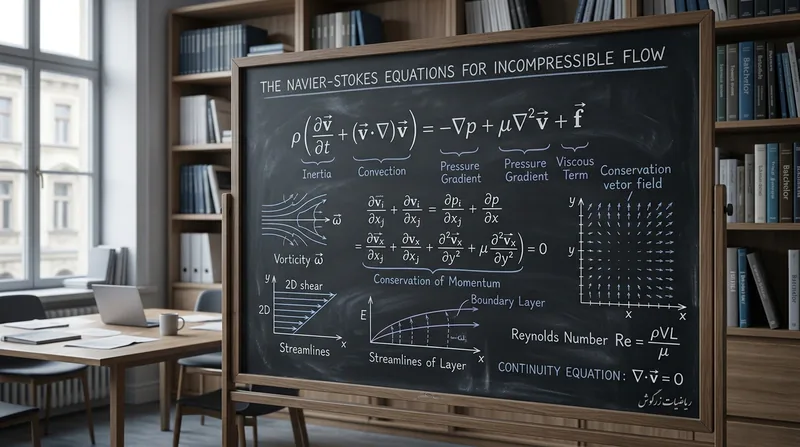 THE NAVIER-STOKES EQUATIONS FOR INCOMPRESSIBLE FLOW
ρ(∂v⃗/∂t + (v⃗·∇)v⃗) = −∇p + μ∇²v⃗ + f⃗
Inertia Convection Pressure Gradient Pressure Gradient Viscous Term
Conservation
vetor field
∂v⃗ᵢ/∂xⱼ + ∂vᵢ/∂xⱼ = ∂pᵢ/∂xⱼ + ∂p/∂x
= ∂v⃗ₓ/∂xⱼ + ∂vₓ/∂xⱼ + ∂²v⃗ₓ/∂y² + μ ∂²v⃗ₓ/∂y²) = 0
Conservation of Momentum
ω⃗
Vorticity ω⃗
y
y
x
x
y
2D shear
2D
x
Streamlines
E
Boundary Layer
x
Streamlines of Layer
Reynolds Number Re = ρVL/μ
CONTINUITY EQUATION: ∇·v⃗ = 0
ریاضیات زرگوش
Batchelor